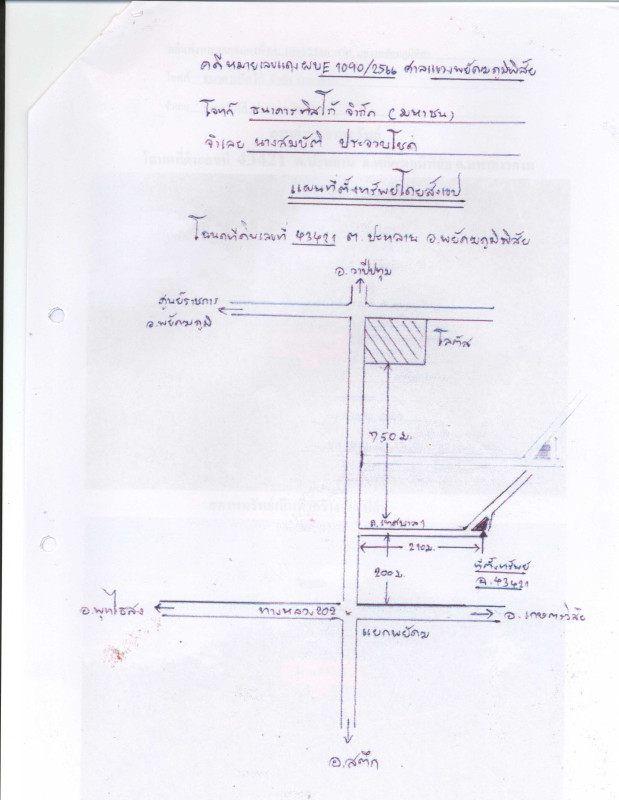 คดีหมายเลขแดงผบE 1090/2566 ศาลแขวงพยัคฆภูมิพิสัย
โจทก์ ธนาคารทิสโก้ จำกัด (มหาชน)
จำเลย นางสมบัติ ประจวบโชค
แผนที่ตั้งทรัพย์โดยสังเขป
โฉนดที่ดินเลขที่ 43421 ต.ปะหลาน อ.พยัคฆภูมิพิสัย
อ.วาปีปทุม
ศูนย์ราชการ
อ.พยัคฆภูมิ
โลตัส
750 ม.
ถ.เทศบาล 1
210 ม.
200 ม.
ที่ตั้งทรัพย์
ฉ.43421
อ.พุทไธสง
ทางหลวง 202
อ.เกษตรวิสัย
แยกพยัคฆ
อ.สตึก